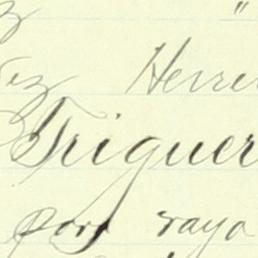 "
ez Herrer
Triguer
por raya